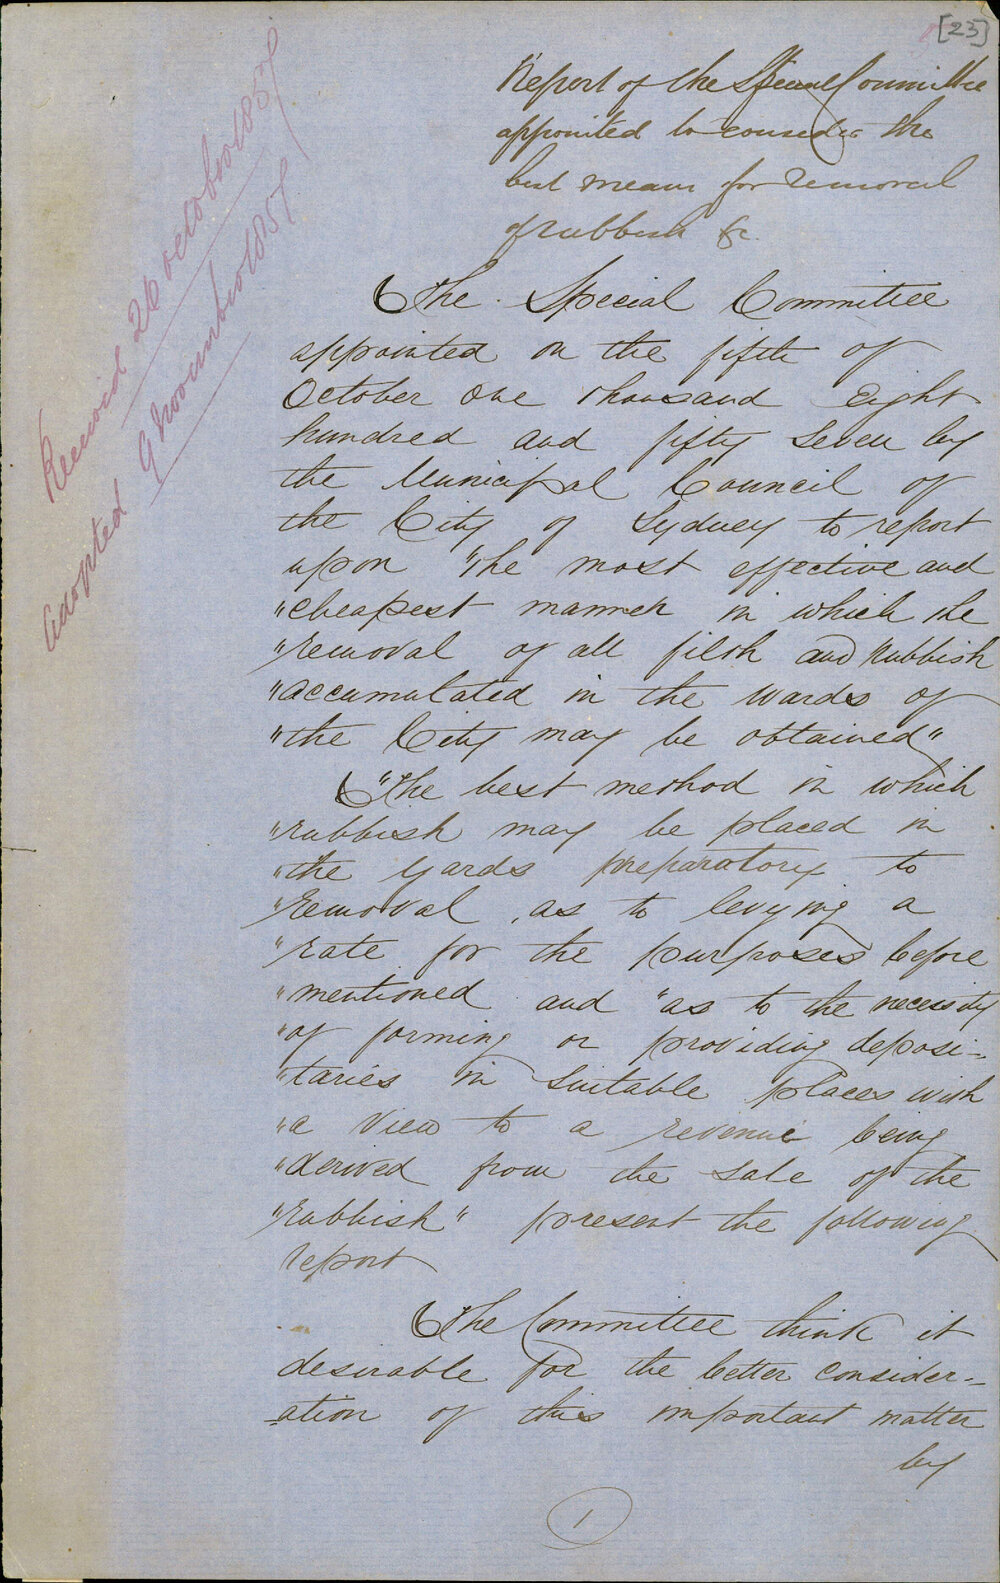 [23]
Report of the Special Committee
appointed to consider the
best means for removal
of rubbish &c.
Received 26 October 1857
Adopted 9 November 1857
The Special Committee
appointed on the fifth of
October One thousand Eight
hundred and fifty Seven by
the Municipal Council of
the City of Sydney to report
upon "the most effective and
"cheapest manner in which the
"removal of all filth and Rubbish
"accumulated in the Wards of
"the City may be obtained"
"The best method in which
"rubbish may be placed in
"the yards preparatory to
"removal, as to levying a
"rate for the purposes before
"mentioned and "as to the necessity
"of forming or providing deposi-
"taries in Suitable places with
"a View to a revenue being
"derived from the Sale of the
"rubbish" present the following
report
The Committee think it
desirable for the better consider-
ation of this important matter
by
1